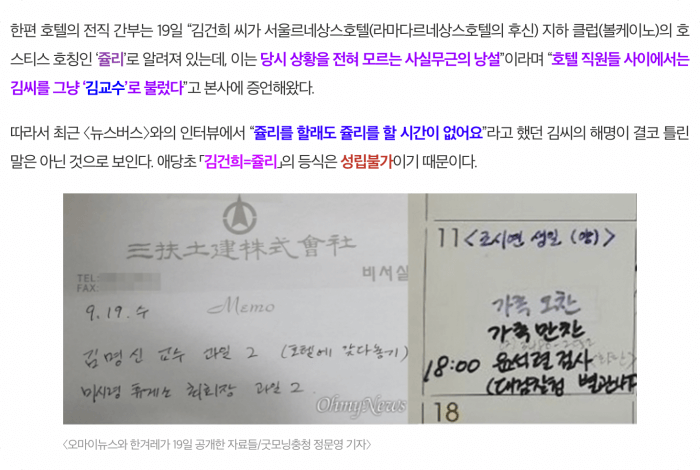 한편 호텔의 전직 간부는 19일 “김건희 씨가 서울르네상스호텔(라마다르네상스호텔의 후신) 지하 클럽(볼케이노)의 호
스티스 호칭인 ‘쥴리’로 알려져 있는데, 이는 당시 상황을 전혀 모르는 사실무근의 낭설”이라며 “호텔 직원들 사이에서는
김씨를 그냥 ‘김교수’로 불렀다”고 본사에 증언해왔다.
따라서 최근 〈뉴스버스〉와의 인터뷰에서 “쥴리를 할래도 쥴리를 할 시간이 없어요”라고 했던 김씨의 해명이 결코 틀린
말은 아닌 것으로 보인다. 애당초 「김건희=쥴리」의 등식은 성립불가이기 때문이다.
三扶土建株式會社
TEL:
FAX:
비서실
9.19.수
Memo
김명신 교수 과일 2 (호텔에 갖다놓기)
미시령 휴게소 최회장 과일 2.
OhmyNews
11 <조시연 생일 (양)>
가족 오찬
가족 만찬
18:00 윤석렬 검사
(대검찰청 별관
18
〈오마이뉴스와 한겨레가 19일 공개한 자료들/굿모닝충청 정문영 기자〉